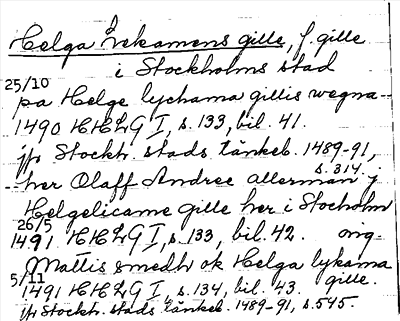 Helga Lekamens gille, f. gille
i Stockholms stad
25/10
pa Helge lychama gillis wegna
1490 HHLG I, s. 133, bil. 41.
jfr Stockh. stads tänkeb. 1489-91,
s. 314.
her Olaff Andree allerman j
Helgelicame gille her i Stocholm
26/5
1491 HHLG I, s. 133, bil. 42. orig.
Mattis smedh ok Helga lykama
gille.
5/11
1491 HHLG I, s. 134, bil. 43.
jfr Stockh. stads tänkeb. 1489-91, s. 545.